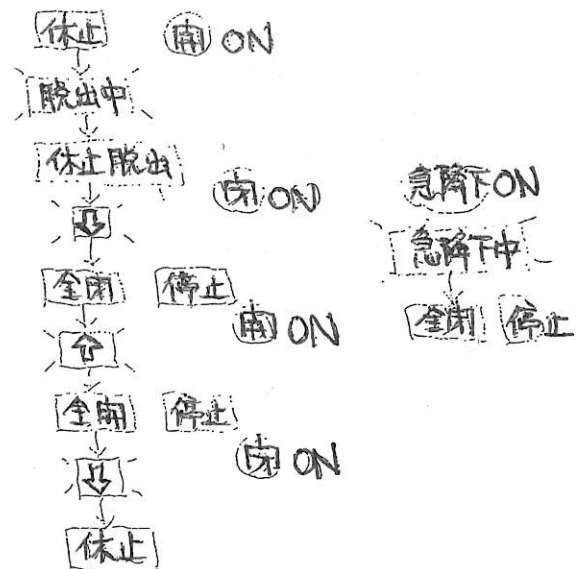 休止 開 ON
脱出中
休止脱出
閉 ON
⇩
全閉 停止
開 ON
⇧
全開 停止
閉 ON
⇩
休止
急降下ON
急降下中
全閉 停止